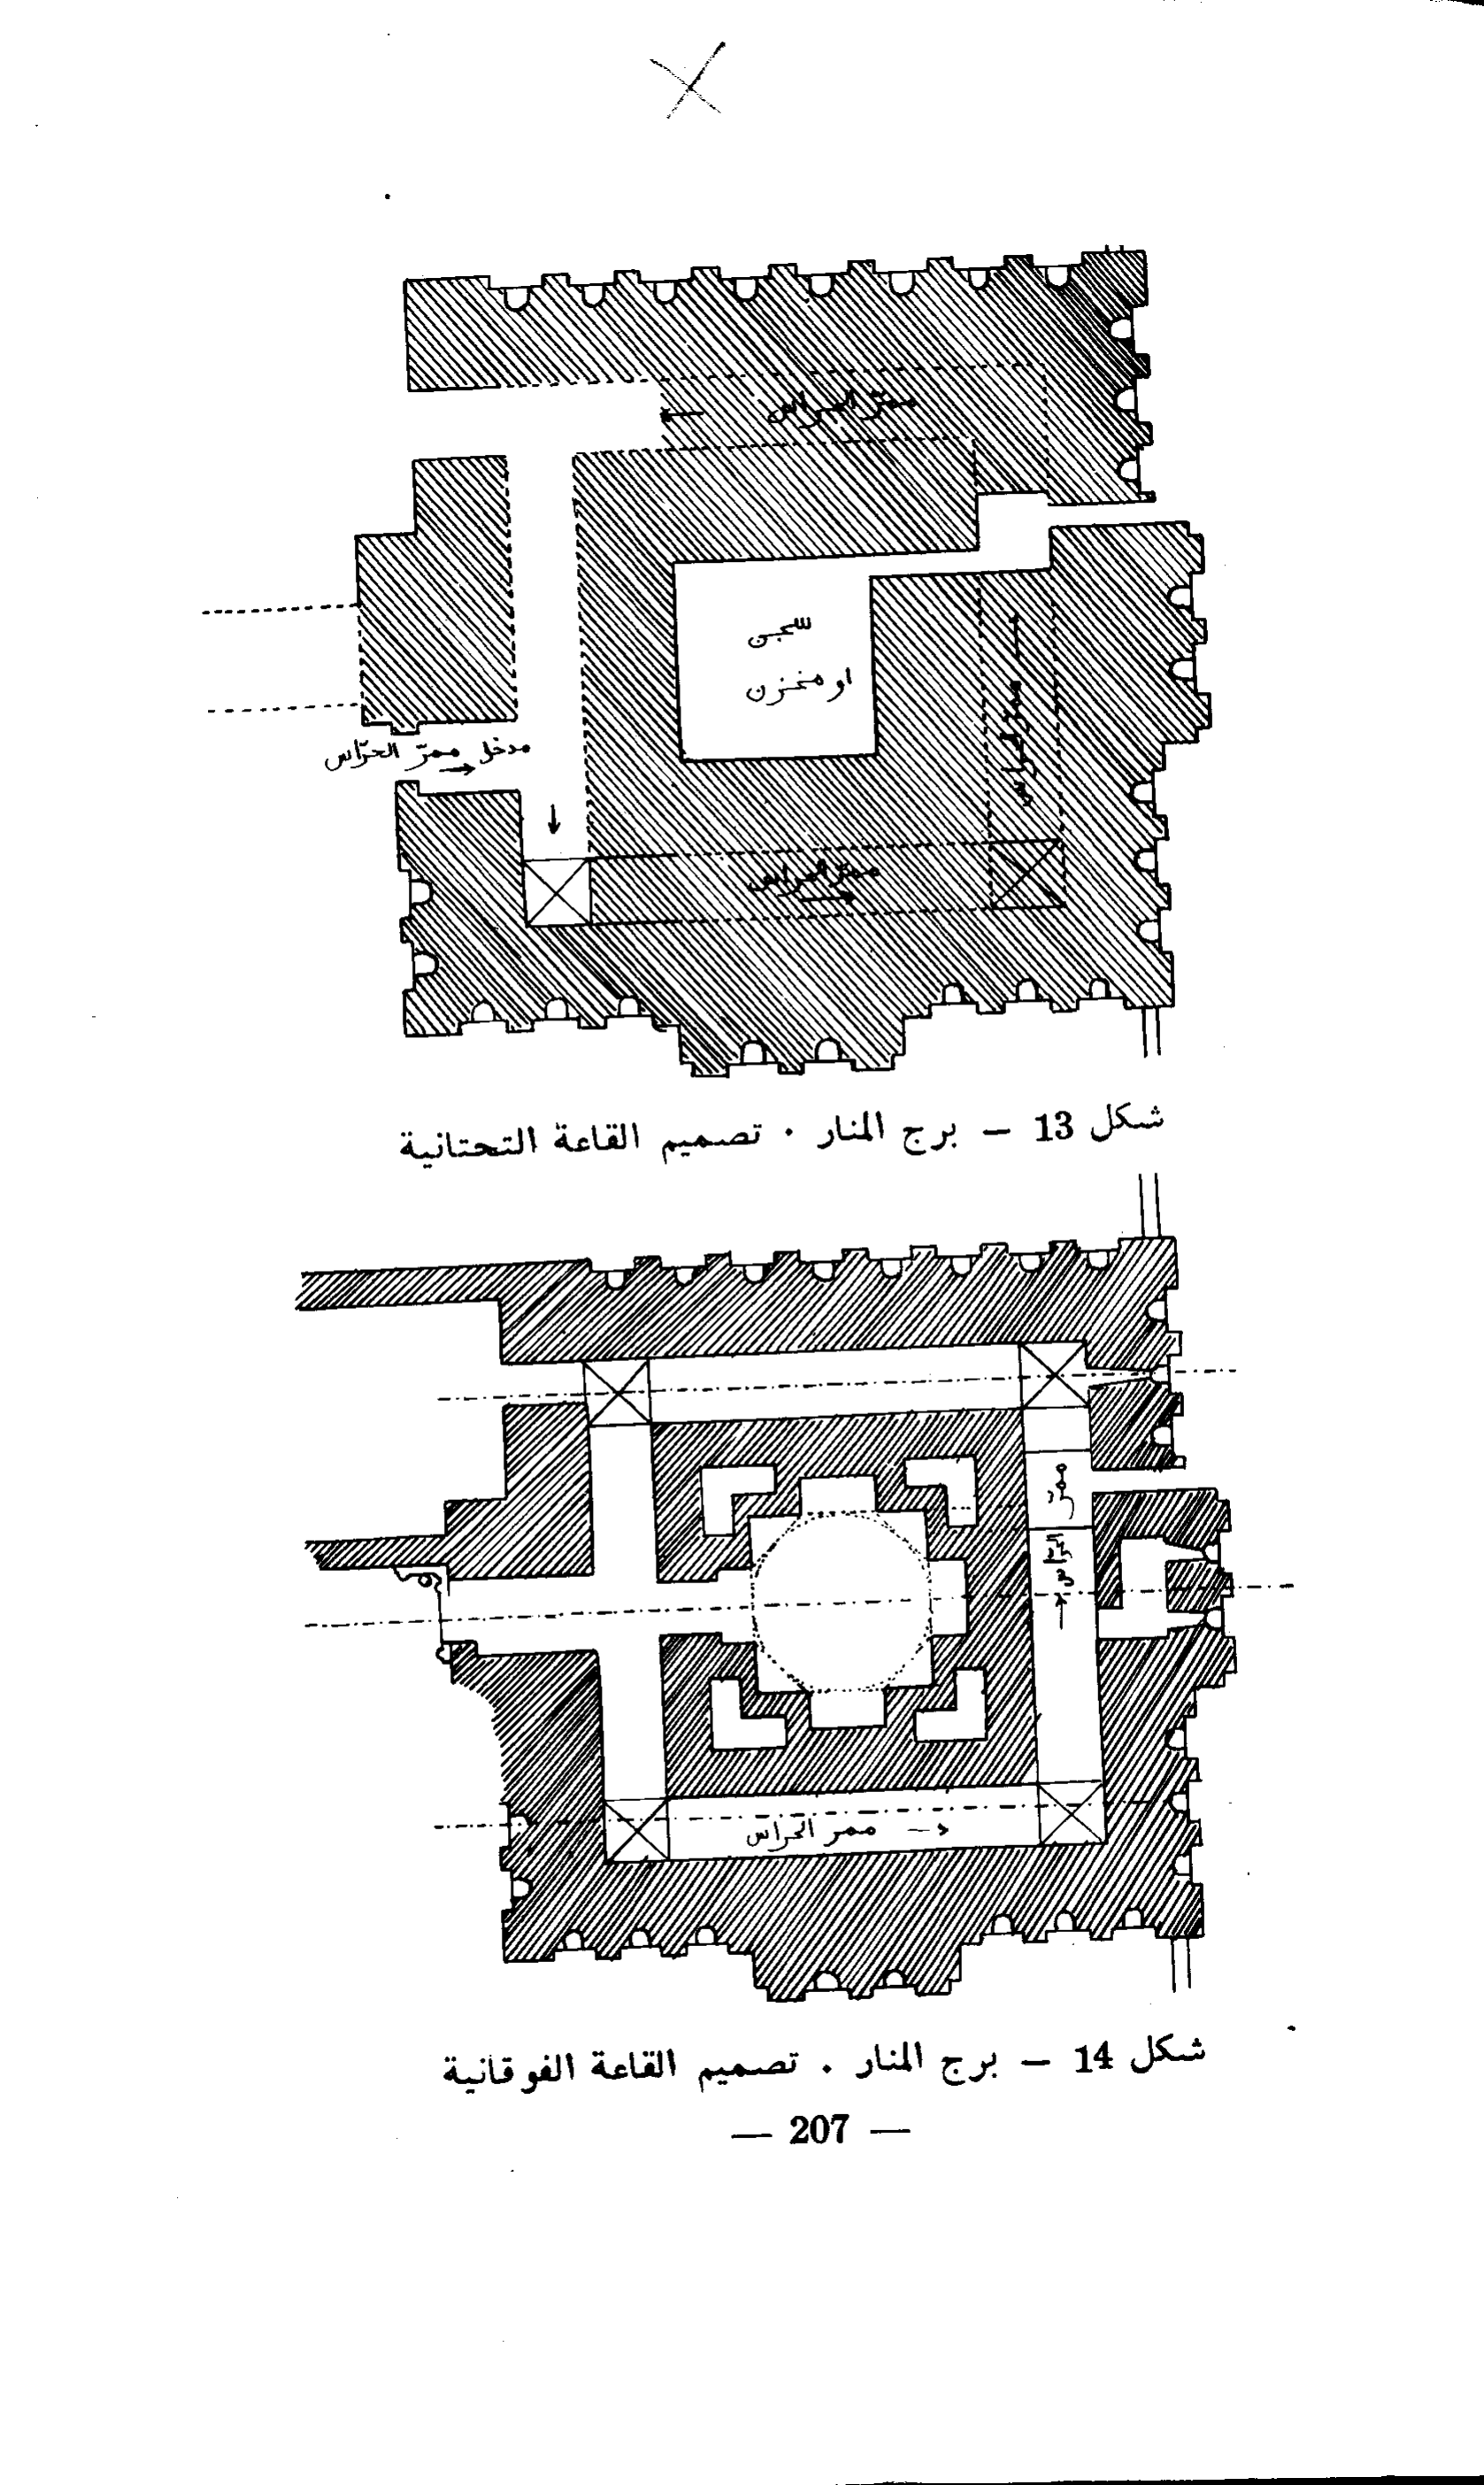 ممرّ الحراس
سجن
او مخزن
ممرّ الحراس
مدخل ممرّ الحرّاس
ممرّ الحراس
شكل 13 – برج المنار . تصميم القاعة التحتانية
ممر الحراس
شكل 14 – برج المنار . تصميم القاعة الفوقانية
— 207 —